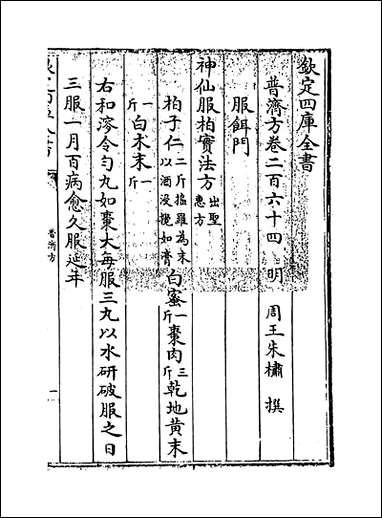 欽定四庫全書
普濟方卷二百六十四　明　周王朱橚　撰
服餌門
神仙服柏實法方出聖惠方
柏子仁二斤搗羅為末以酒没攪如膏白蜜一斤棗肉三斤乾地黄末
一斤白术末一斤
右和溶令匀丸如棗大每服三丸以水研破服之日
三服一月百病愈久服延年
普濟方
一